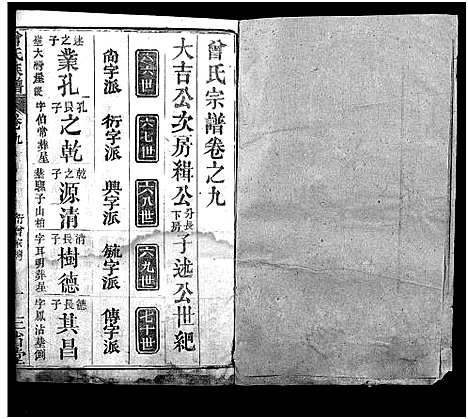 曾氏宗譜卷之九
大吉公次房緝公分長下房子述公世紀
六六世 六七世 六八世 六九世 七十世
尙字派 衍字派 興字派 毓字派 傳字派
述之子 業孔 孔長子 之乾 乾之子 源清 清長子 樹德 德長子 其昌
字伯常葬星 字子山 字耳明葬星 字鳳沽葬倒
曾氏族譜 卷九 三省堂